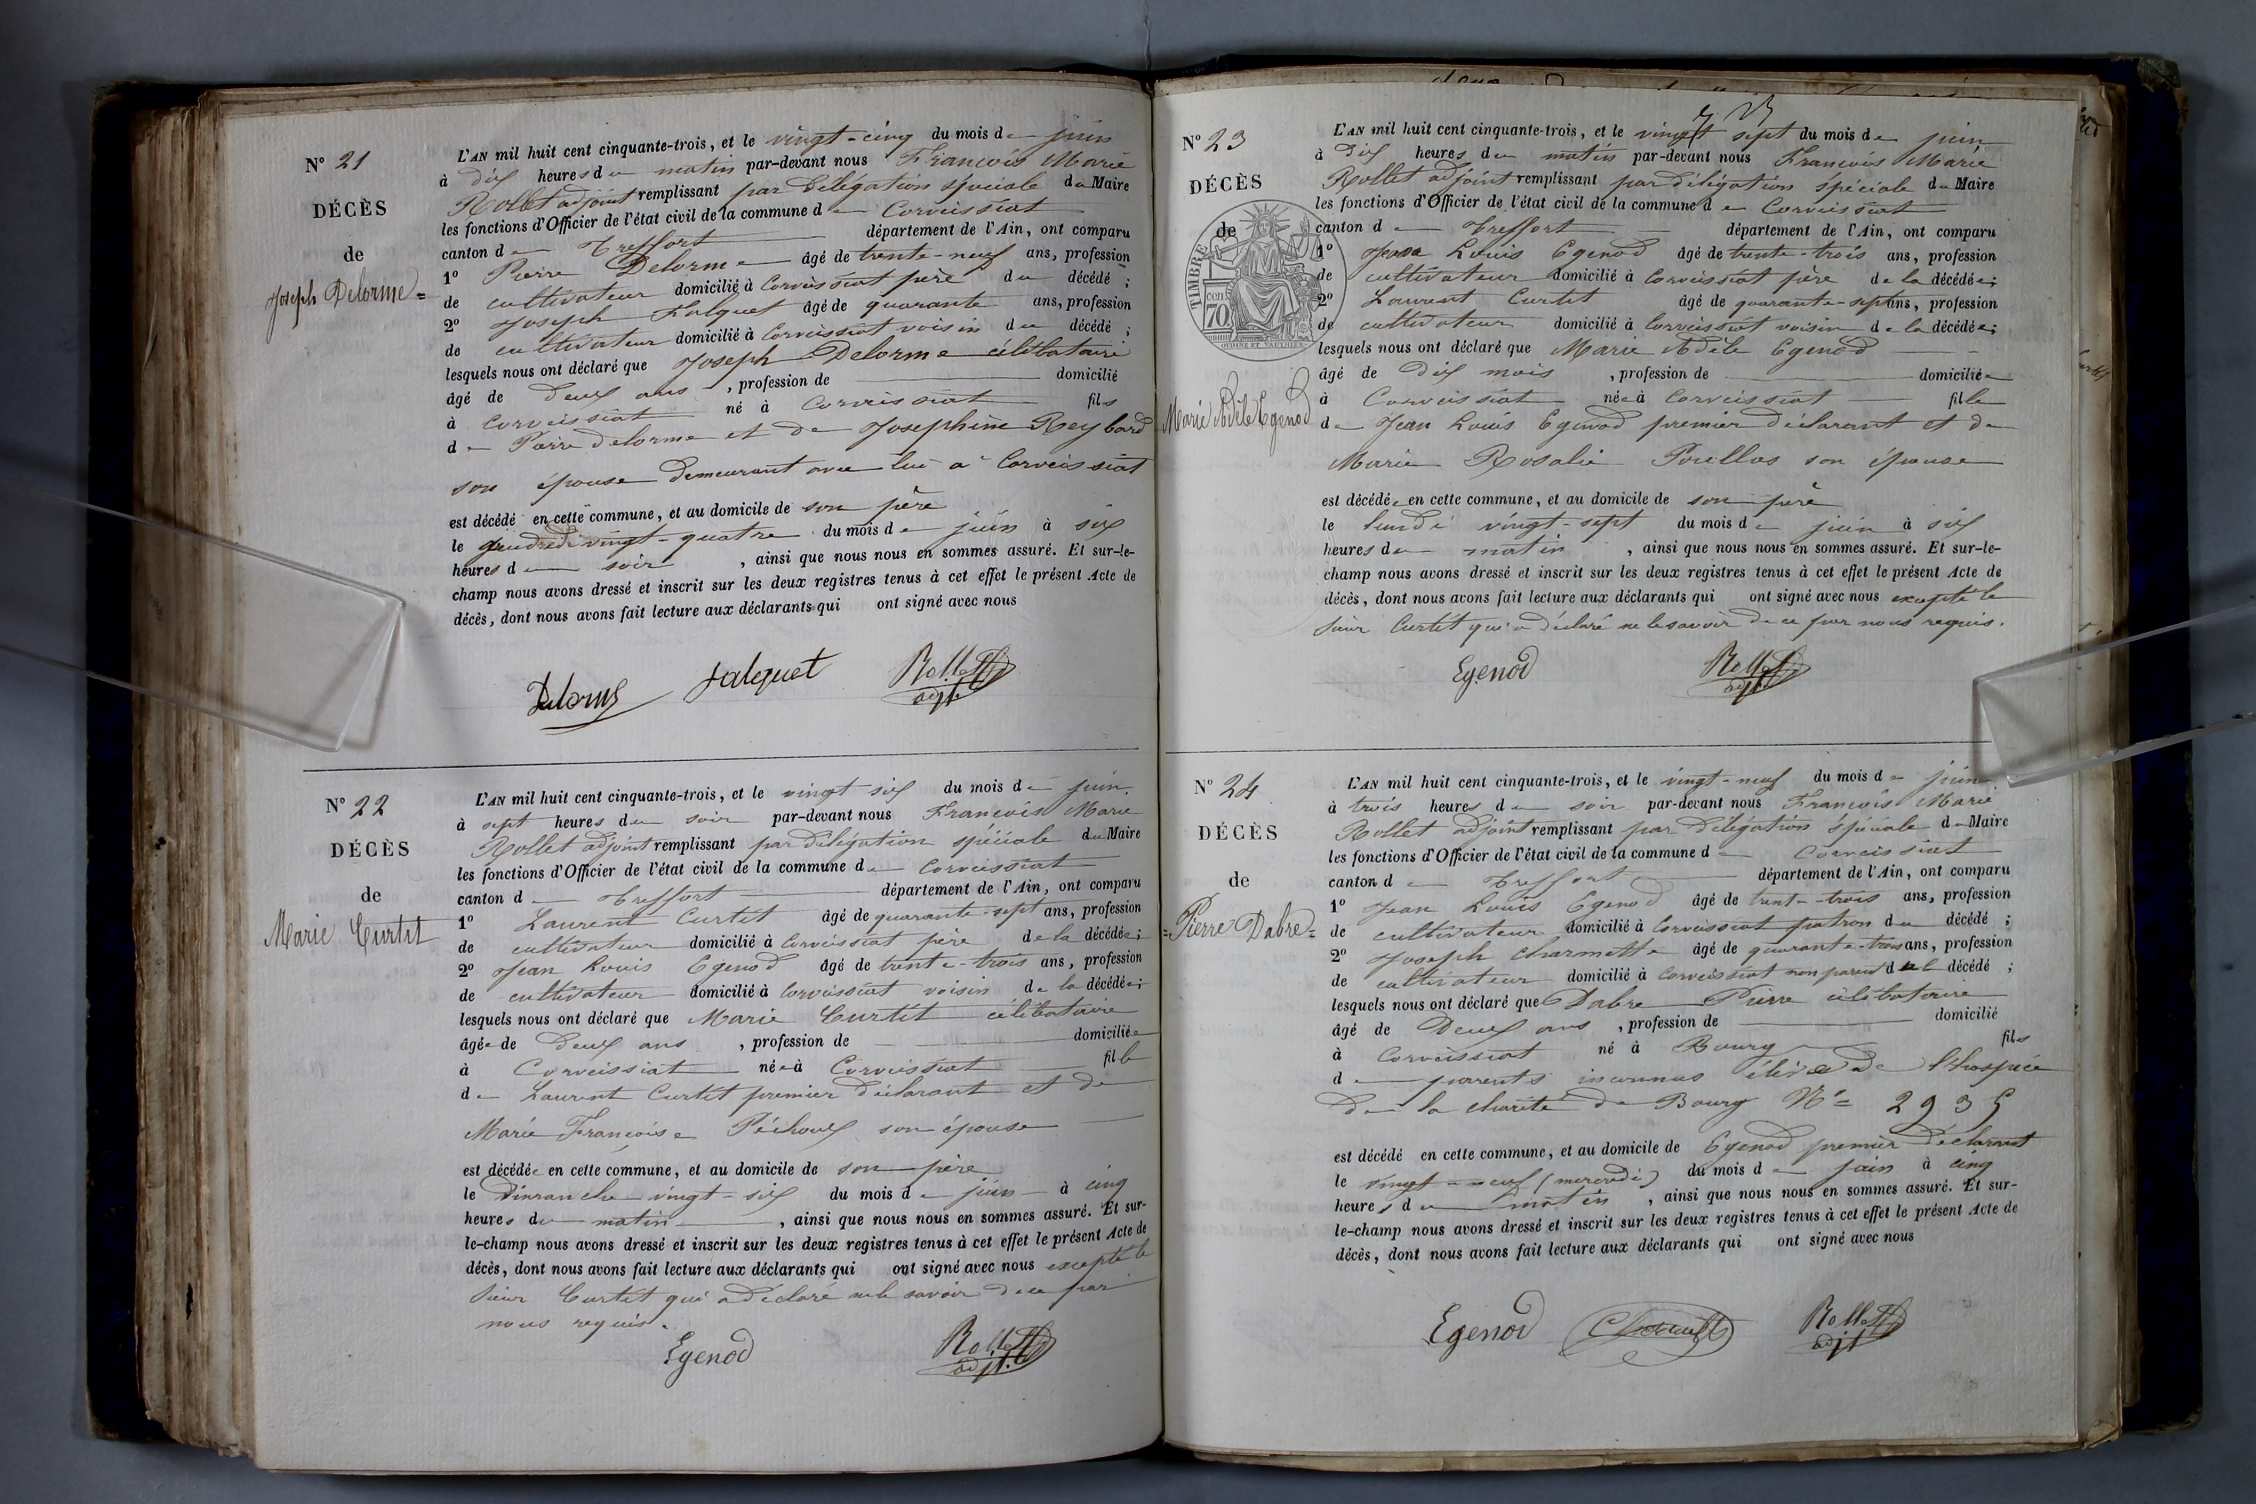 N° 21
DÉCÈS
de
Joseph Delorme =
L'AN mil huit cent cinquante-trois, et le vingt-cinq du mois de juin
à dix heures du matin par-devant nous François Marie
Rollet adjoint remplissant par délégation spéciale du Maire
les fonctions d'Officier de l'état civil de la commune de Corveissiat
canton de Treffort département de l'Ain, ont comparu
1° Pierre Delorme âgé de trente-neuf ans, profession
de cultivateur domicilié à Corveissiat père du décédé ;
2° Joseph Falquet âgé de quarante ans, profession
de cultivateur domicilié à Corveissiat voisin du décédé ;
lesquels nous ont déclaré que Joseph Delorme célibataire
âgé de deux ans , profession de domicilié
à Corveissiat né à Corveissiat fils
de Pierre Delorme et de Josephine Reybard
son épouse demeurant avec lui à Corveissiat
est décédé en cette commune, et au domicile de son père
le vingt-quatre du mois de juin à six
heures du soir , ainsi que nous nous en sommes assuré. Et sur-le-
champ nous avons dressé et inscrit sur les deux registres tenus à cet effet le présent Acte de
décès, dont nous avons fait lecture aux déclarants qui ont signé avec nous
Delorme Falquet Rollet
adjt
N° 22
DÉCÈS
de
Marie Curtit
L'AN mil huit cent cinquante-trois, et le vingt six du mois de juin
à sept heures du soir par-devant nous François Marie
Rollet adjoint remplissant par délégation spéciale du Maire
les fonctions d'Officier de l'état civil de la commune de Corveissiat
canton de Treffort département de l'Ain, ont comparu
1° Laurent Curtit âgé de quarante-sept ans, profession
de cultivateur domicilié à Corveissiat père de la décédée ;
2° Jean Louis Egenod âgé de trente-trois ans, profession
de cultivateur domicilié à Corveissiat voisin de la décédée ;
lesquels nous ont déclaré que Marie Curtit célibataire
âgée de deux ans , profession de domiciliée
à Corveissiat née à Corveissiat fille
de Laurent Curtit premier déclarant et de
Marie Françoise Péchoux son épouse
est décédée en cette commune, et au domicile de son père
le Dimanche vingt-six du mois de juin à cinq
heures du matin , ainsi que nous nous en sommes assuré. Et sur-
le-champ nous avons dressé et inscrit sur les deux registres tenus à cet effet le présent Acte de
décès, dont nous avons fait lecture aux déclarants qui ont signé avec nous excepté le
sieur Curtit qui a déclaré ne le savoir de ce par
nous requis.
Egenod Rollet
adjt
N° 23
DÉCÈS
de
TIMBRE
cen.
70
Marie Adèle Egenod
L'AN mil huit cent cinquante-trois, et le vingt sept du mois de juin
à dix heures du matin par-devant nous François Marie
Rollet adjoint remplissant par délégation spéciale du Maire
les fonctions d'Officier de l'état civil de la commune de Corveissiat
canton de Treffort département de l'Ain, ont comparu
1° Jean Louis Egenod âgé de trente-trois ans, profession
de cultivateur domicilié à Corveissiat père de la décédée ;
2° Laurent Curtit âgé de quarante-sept ans, profession
de cultivateur domicilié à Corveissiat voisin de la décédée ;
lesquels nous ont déclaré que Marie Adèle Egenod
âgé de dix mois , profession de domiciliée
à Corveissiat née à Corveissiat fille
de Jean Louis Egenod premier déclarant et de
Marie Rosalie son épouse
est décédée en cette commune, et au domicile de son père
le lundi vingt-sept du mois de juin à six
heures du matin , ainsi que nous nous en sommes assuré. Et sur-le-
champ nous avons dressé et inscrit sur les deux registres tenus à cet effet le présent Acte de
décès, dont nous avons fait lecture aux déclarants qui ont signé avec nous excepté le
sieur Curtit qui a déclaré ne le savoir de ce par nous requis.
Egenod Rollet
adjt
N° 24
DÉCÈS
de
= Pierre Dabre =
L'AN mil huit cent cinquante-trois, et le vingt-neuf du mois de juin
à trois heures du soir par-devant nous François Marie
Rollet adjoint remplissant par délégation spéciale du Maire
les fonctions d'Officier de l'état civil de la commune de Corveissiat
canton de Treffort département de l'Ain, ont comparu
1° Jean Louis Egenod âgé de trente-trois ans, profession
de cultivateur domicilié à Corveissiat patron du décédé ;
2° Joseph Charmette âgé de quarante-trois ans, profession
de cultivateur domicilié à Corveissiat non parent décédé ;
lesquels nous ont déclaré que Dabre Pierre célibataire
âgé de Deux ans , profession de domicilié
à Corveissiat né à Bourg fils
de parents inconnus élève de l'hospice
de la charité de Bourg N° 2935
est décédé en cette commune, et au domicile de Egenod premier déclarant
le vingt-neuf (mercredi) du mois de juin à cinq
heures du matin , ainsi que nous nous en sommes assuré. Et sur-
le-champ nous avons dressé et inscrit sur les deux registres tenus à cet effet le présent Acte de
décès, dont nous avons fait lecture aux déclarants qui ont signé avec nous
Egenod Rollet
adjt